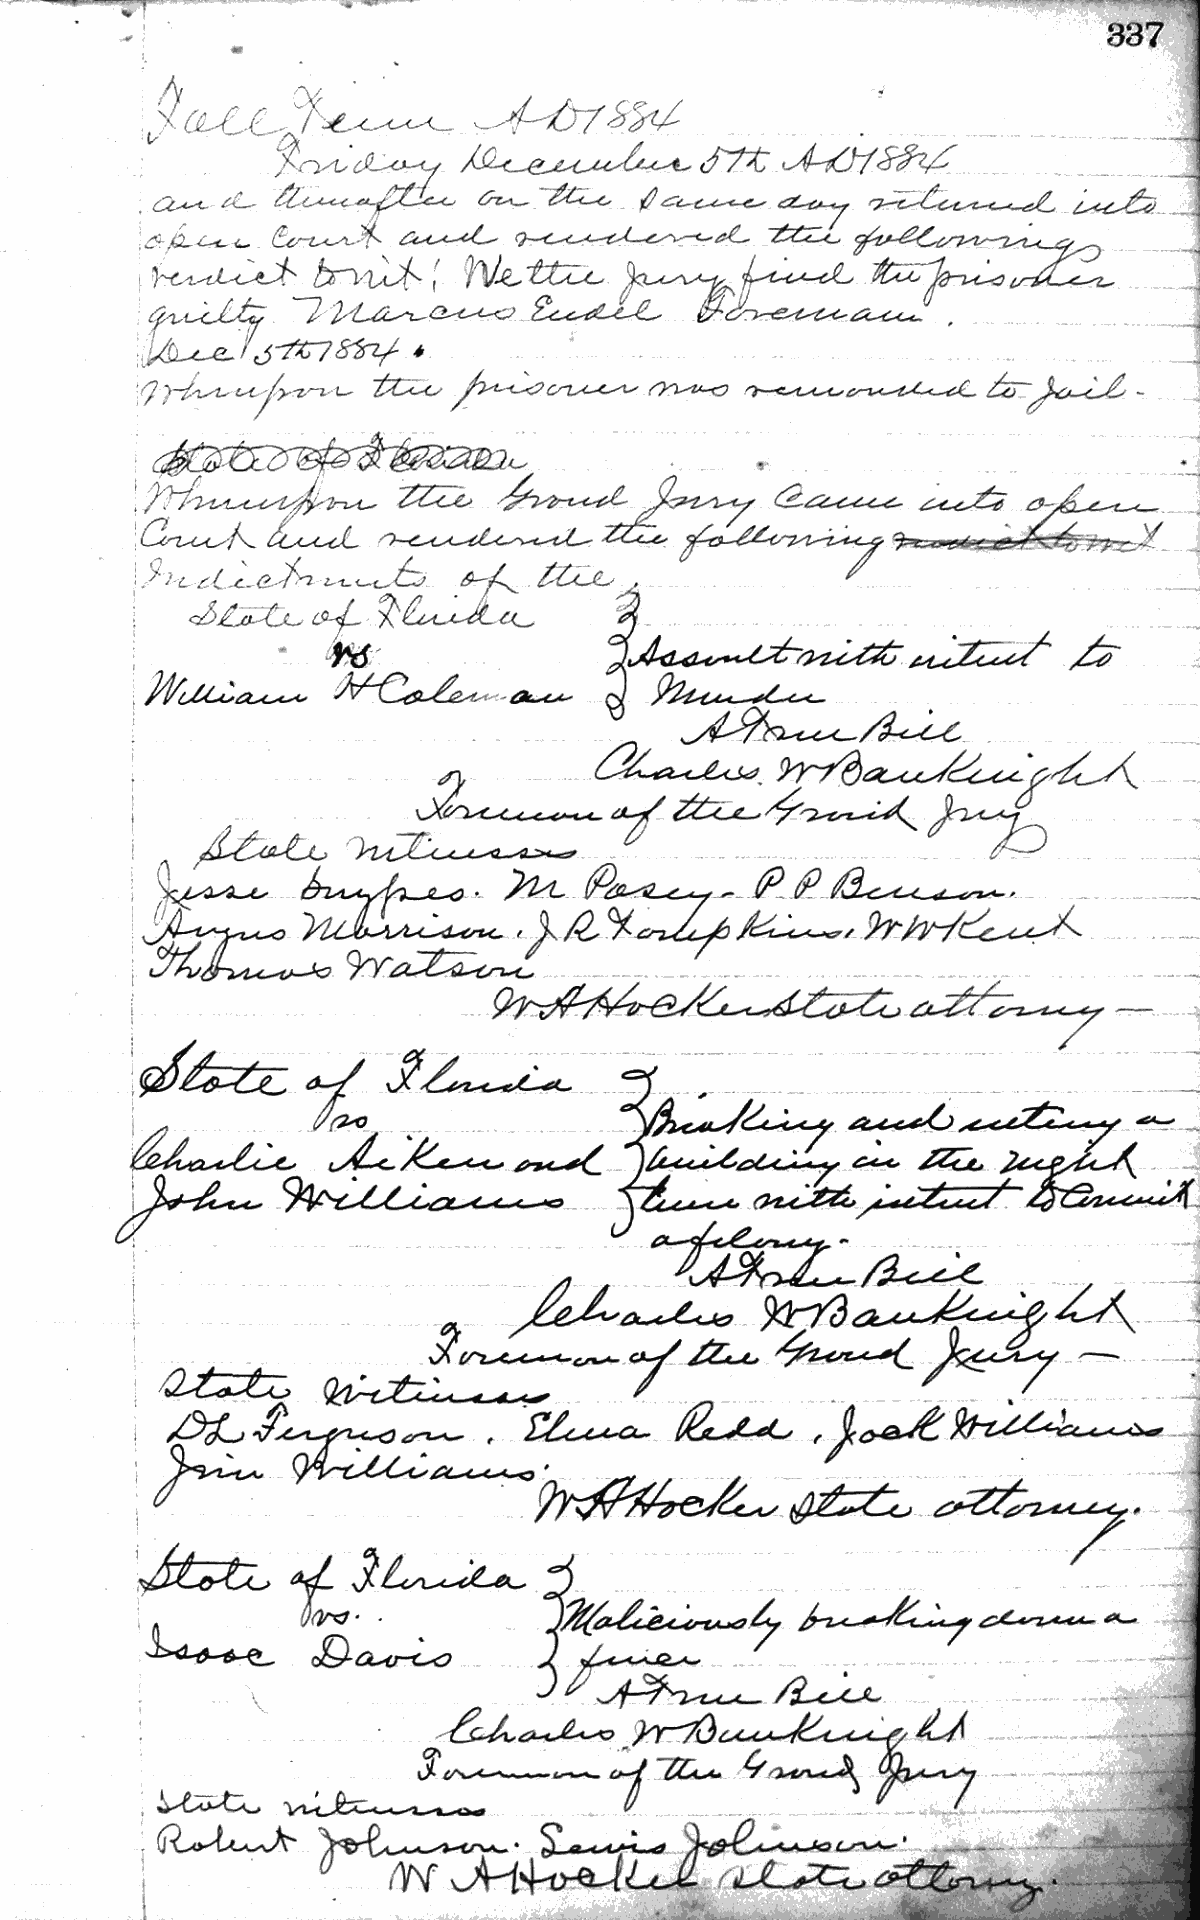 337
Fall Term AD 1884
Friday December 5th AD 1884
and thereafter on the same day returned into
open Court and rendered the following
verdict towit! We the Jury find the prisoner
guilty Marcus Endel Foreman.
Dec 5th 1884.
Whereupon the prisoner was remanded to Jail-
State of Florida
Whereupon the Grand Jury Came into open
Court and rendered the following verdict towit
Indictments of the
State of Florida
vs
Assault with intent to
William H Coleman
Murder
A True Bill
Charles W BauKnight
Foreman of the Grand Jury
State witnesses
Jesse M Posey- P P Benson.
Angus Morrison. J R TompKins. W W Kent
Thomas Watson
W A HocKer State attorney —
State of Florida
vs
Breaking and entering a
Charlie AiKen and
building in the night
John Williams
time with intent to Commit
a felony-
A True Bill
Charles W BauKnight
Foreman of the Grand Jury —
State Witnesses
D L Ferguson. Elma Redd. Jack Williams
Jim Williams.
W A HocKer State attorney.
State of Florida
vs.
Maliciously breaking down a
Isaac Davis
fence
A True Bill
Charles W BauKnight
Foreman of the Grand Jury
State witnesses
Robert Johnson. Lewis Johnson.
W A HocKer State attorney.